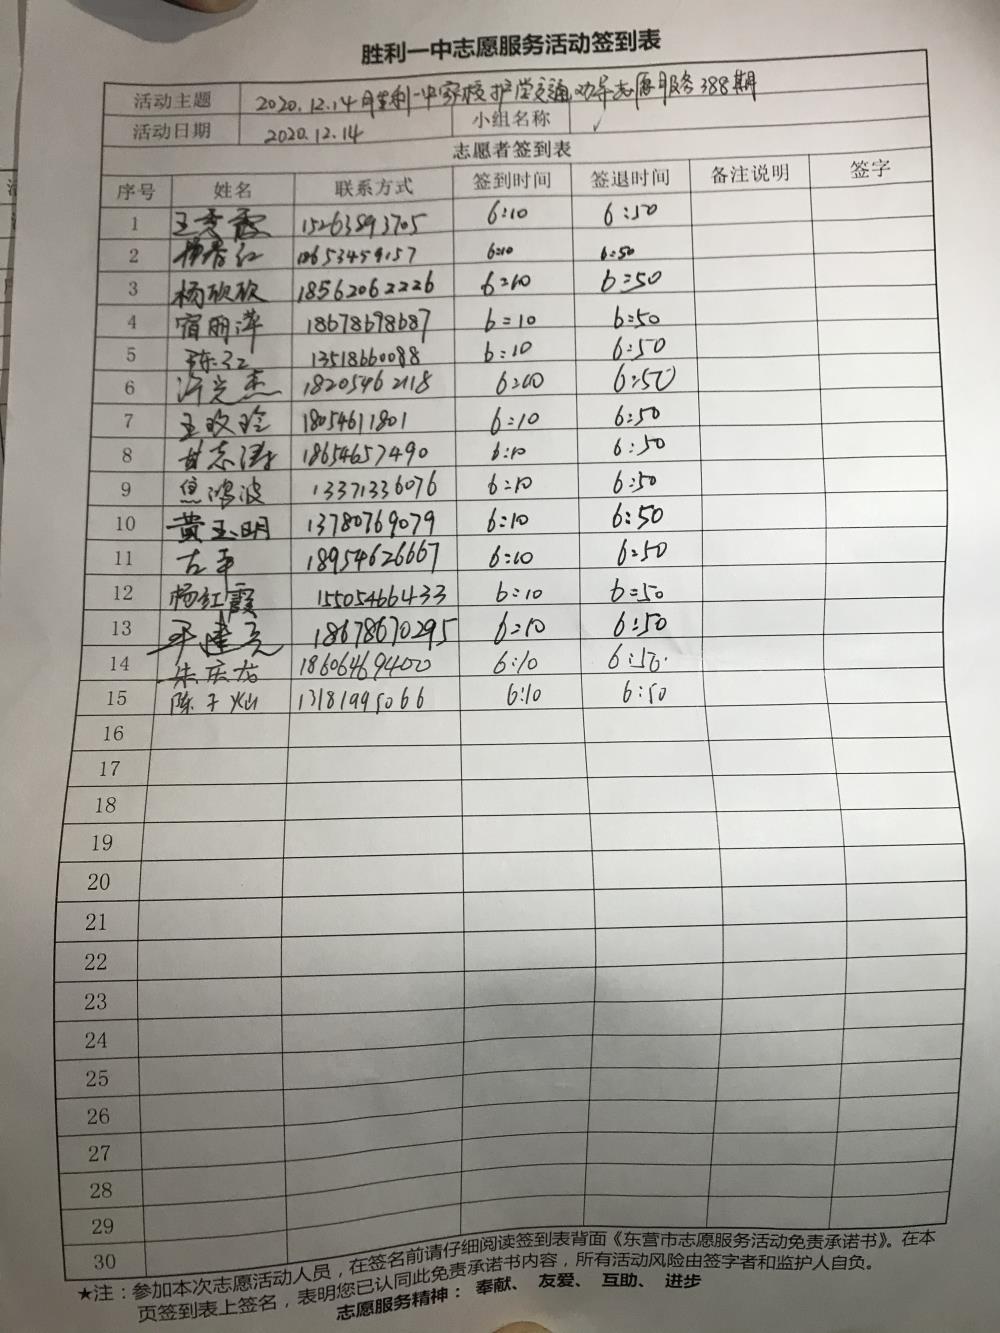 胜利一中志愿服务活动签到表
活动主题 2020.12.14月胜利一中家校护学交通劝导志愿服务388期
活动日期 2020.12.14 小组名称
志愿者签到表
序号 姓名 联系方式 签到时间 签退时间 备注说明 签字
1 王秀霞 15263893705 6:10 6:50
2 杨春红 6:10 6:50
3 杨欣欣 18562062226 6:10 6:50
4 宿丽萍 18678698687 6:10 6:50
5 陈红 13518660088 6:10 6:50
6 18205462118 6:10 6:50
7 王玫玲 18054611801 6:10 6:50
8 甘志涛 18654657490 6:10 6:50
9 焦鸿波 13371336076 6:10 6:50
10 黄玉明 13780769079 6:10 6:50
11 古平 18954626667 6:10 6:50
12 杨红霞 15505466433 6:10 6:50
13 18678670295 6:10 6:50
14 朱庆龙 18606469400 6:10 6:50
15 陈子灿 13181995066 6:10 6:50
16
17
18
19
20
21
22
23
24
25
26
27
28
29
30
★注：参加本次志愿活动人员，在签名前请仔细阅读签到表背面《东营市志愿服务活动免责承诺书》。在本
页签到表上签名，表明您已认同此免责承诺书内容，所有活动风险由签字者和监护人自负。
志愿服务精神：奉献、友爱、互助、进步